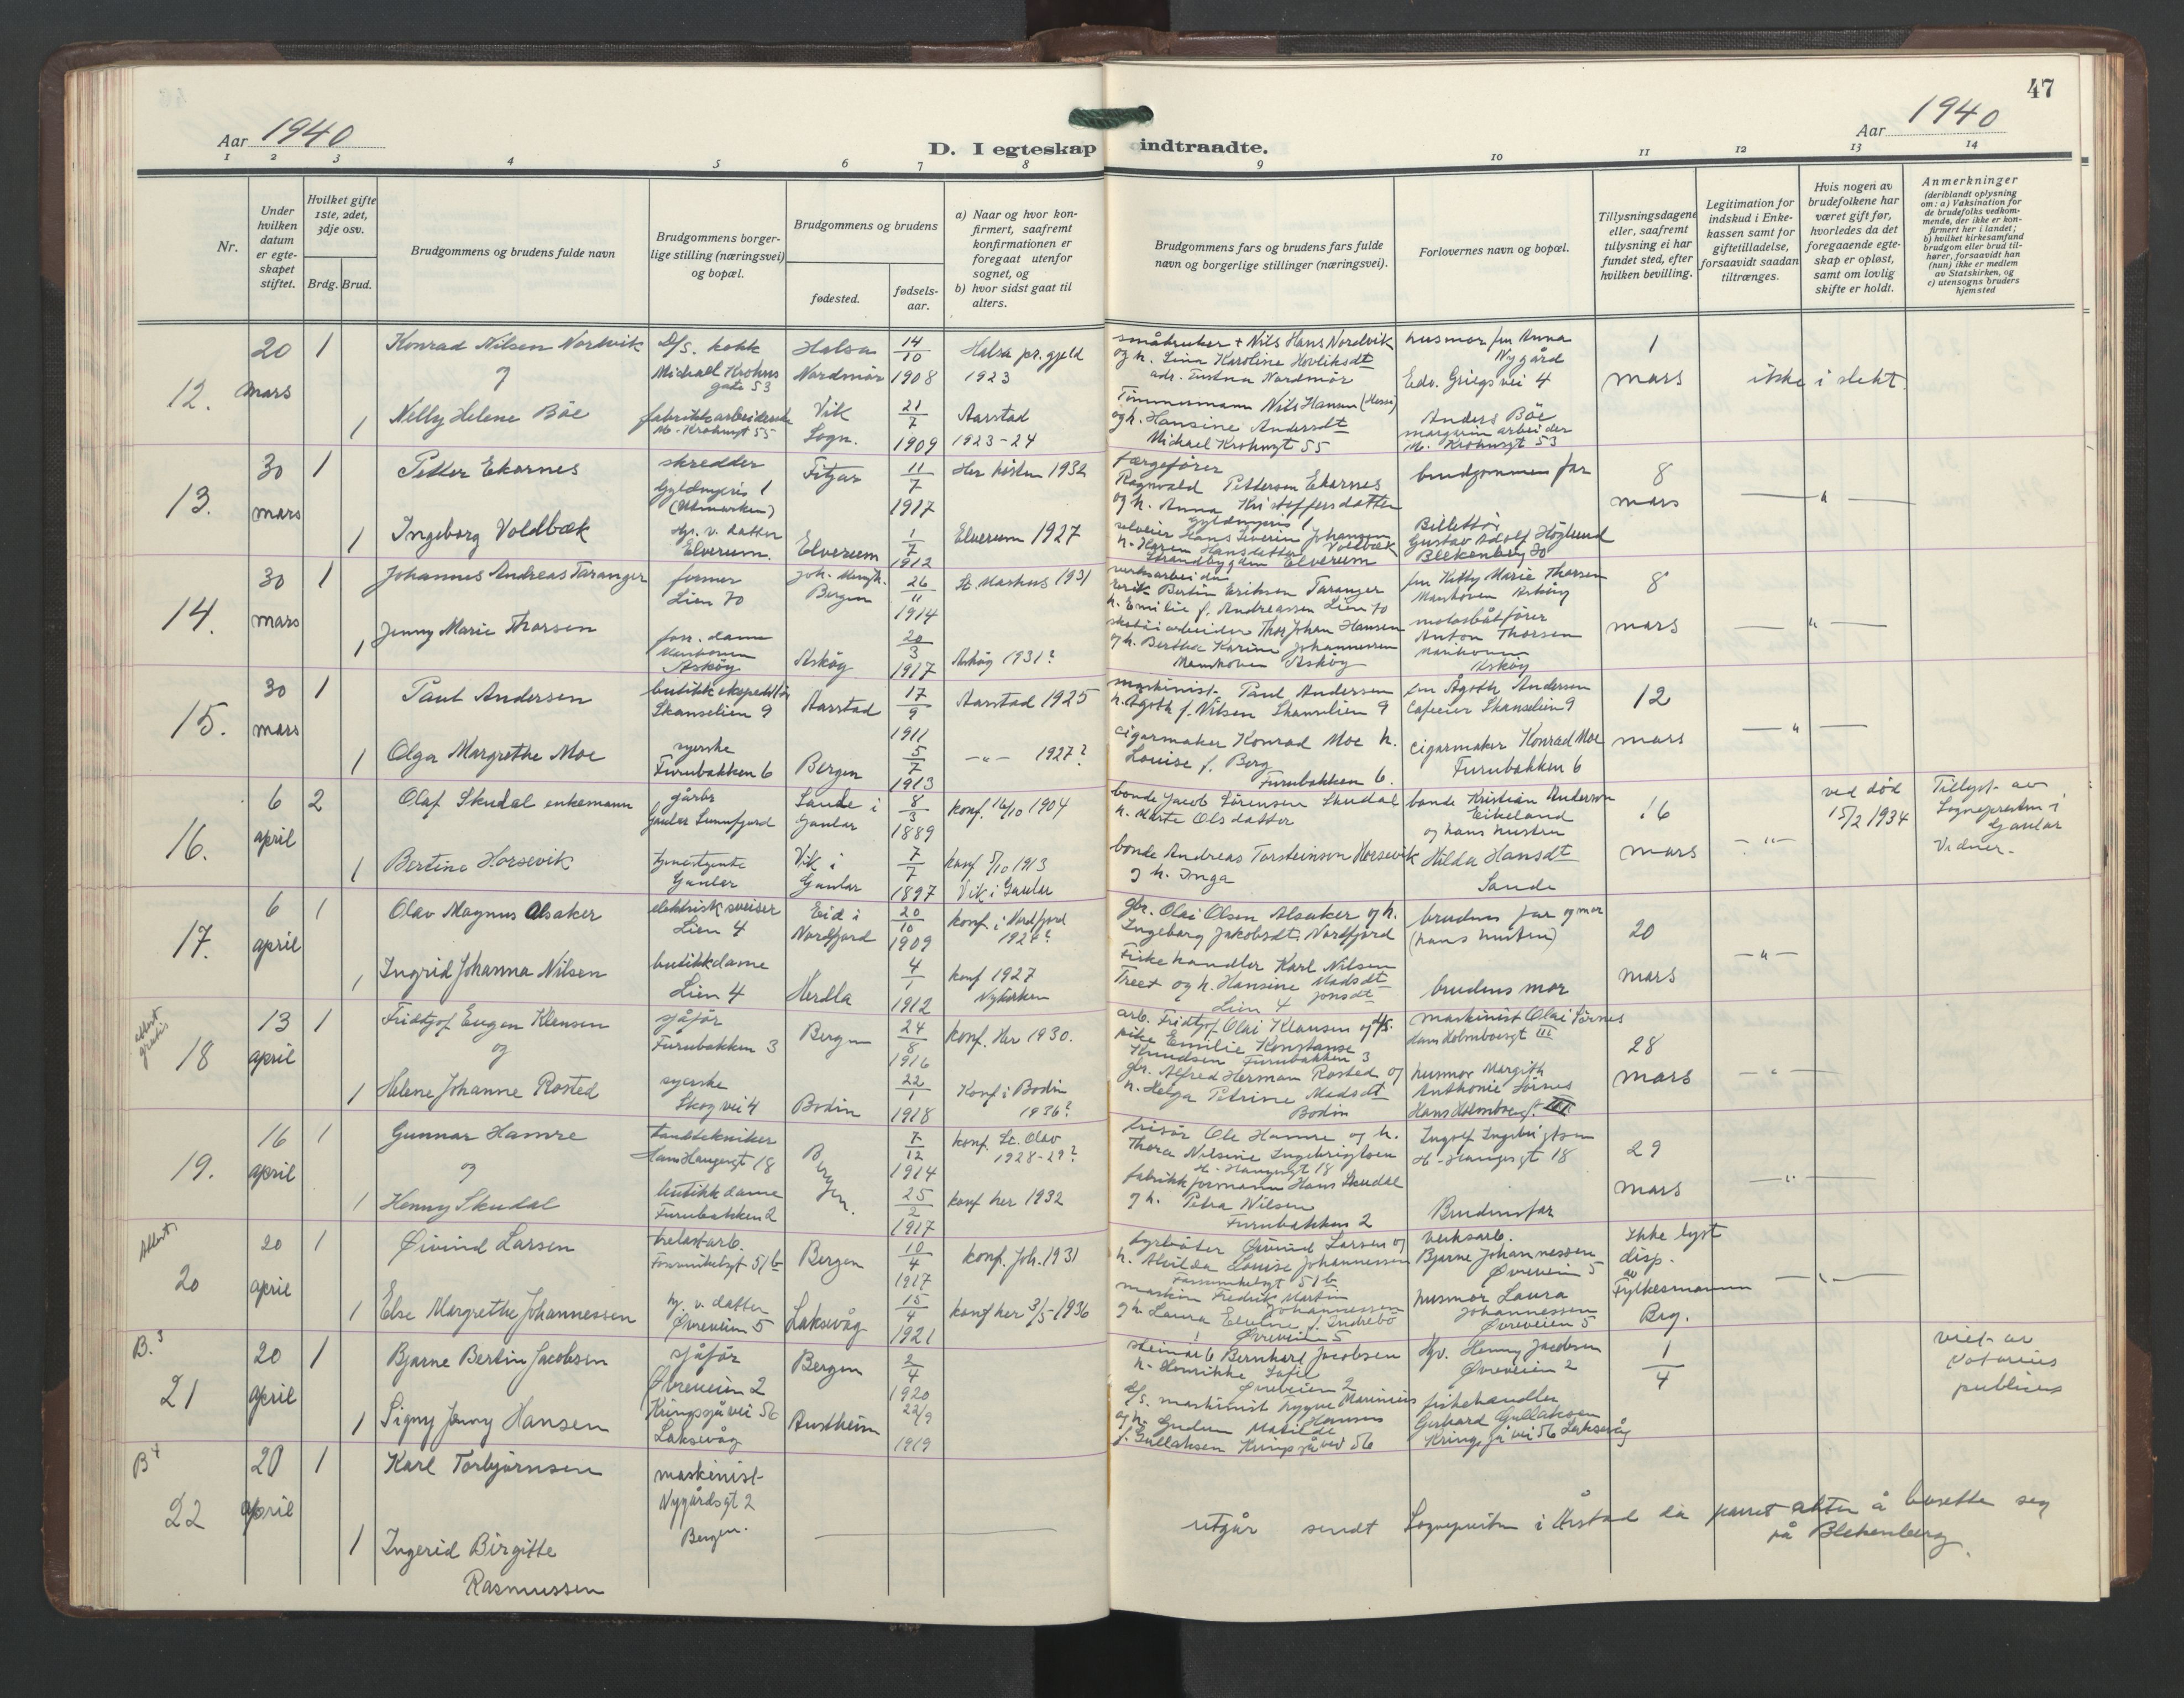 47
Aar 1940
Aar 1940
D. I egteskap indtraadte.
1 2 3 4 5 6 7 8 9 10 11 12 13 14
Nr.
Under hvilken datum er egteskapet stiftet.
Hvilket gifte 1ste, 2det, 3dje osv.
Brdg. Brud.
Brudgommens og brudens fulde navn
Brudgommens borgerlige stilling (næringsvei) og bopæl.
Brudgommens og brudens
fødested.
fødselsaar.
a) Naar og hvor konfirmert, saafremt konfirmationen er foregaat utenfor sognet, og
b) hvor sidst gaat til alters.
Brudgommens fars og brudens fars fulde navn og borgerlige stillinger (næringsvei).
Forlovernes navn og bopæl.
Tillysningsdagene eller, saafremt tillysning ei har fundet sted, efter hvilken bevilling.
Legitimation for indskud i Enkekassen samt for giftetilladelse, forsaavidt saadan tiltrænges.
Hvis nogen av brudefolkene har været gift før, hvorledes da det foregaaende egteskap er opløst, samt om lovlig skifte er holdt.
Anmerkninger
(deriblandt oplysning om: a) Vaksination for de brudefolks vedkommende, der ikke er konfirmert her i landet;
b) hvilket kirkesamfund brudgom eller brud tilhører, forsaavidt han (hun) ikke er medlem av Statskirken, og
c) utensogns bruders hjemsted
12. 20 mars 1
Konrad Nilsen Nordvik
D/S. kokk Michael Krohns gate 53
Halsa Nordmør
14/10 1908
Halsa pr.gjeld 1923
småbruker + Nils Hans Nordvik og h. Lina Karoline
Nordmör
husmor fru Anna Nygård Edv. Griegs vei 4
1 mars
ikke i slekt.
og
1 Nelly Helene Böe
fabrikkarbeiderske M. Krohnsgt 55
Vik Sogn.
21/7 1909
Aarstad 1923-24
Tömmermann Nils Hansen
og h. Hansine Andersdt Michael Krohnsgt 55
Anders Böe margarin arbeider M. Krohnsgt 53
13. 30 mars 1
Petter Ekornes
skredder Gyldenpris 1
Fitjar
11/7 1917
Her hösten 1932
færgeförer Ragnvald Pettersen Ekornes og h. Anna Kristoffersdatter Gyldenpris 1
brudgommens far
8 mars
— " —
1 Ingeborg Voldbæk
Hj. v. datter Elverum.
Elverum
1/7 1912
Elverum 1927
selveier Hans Severin Johansen Voldbæk h. Karen Hansdatter Strandbygden Elverum
Billettör Gustav Adolf Höglund Blekenberg 30
14. 30 mars 1
Johannes Andreas Taranger
former Lien 70
Joh. Bergen
26/11 1914
St. Markus 1931
verksarbeider Bertin Eriksen Taranger h. Emilie f. Andreassen Lien 70
fru Kitty Marie Thorsen Asköy
8 mars
— " —
1 Jenny Marie Thorsen
forr. dame Asköy
Asköy
20/3 1917
Asköy 1931?
Thor Johan Hansen og h. Karine Johannessen Asköy
motorbåtförer Anton Thorsen Asköy
15. 30 mars 1
Paul Andersen
butikkekspeditör Skanselien 9
Aarstad
17/9 1911
Aarstad 1925
maskinist Paul Andersen h. Agoth f. Nilsen Skanselien 9
fru Ågoth Andersen Cafeeier Skanselien 9
12 mars
— " —
1 Olga Margrethe Moe
syerske Furubakken 6
Bergen
5/7 1913
— " — 1927?
cigarmaker Konrad Moe h. Louise f. Berg Furubakken 6.
cigarmaker Konrad Moe Furubakken 6
16. 6 april 2
Olaf Skudal enkemann
gårbr Gaular Sunnfjord
Sande i Gaular
8/3 1889
konf. 16/10 1904
bonde Jacob Sörensen Skudal h. Marte Olsdatter
bonde Kristian Andersen Eikeland og hans hustru
16 mars
- " -
ved död 15/2 1934
Tillyst av Sognepresten i Gaular
1 Bertine Horsevik
tjenestjente Gaular
Vik i Gaular
7/7 1897
konf 5/10 1913 Vik i Gaular
bonde Andreas Torsteinson Horsevik og h. Inga
Hilda Hansdt Sande
17. 6 april 1
Olav Magnus Alsaker
elektrisk sveiser Lien 4
Eid i Nordfjord
20/10 1909
konf. i Nordfjord 1924?
gbr. Olai Olsen Alsaker og h. Ingeborg Jakobsdt. Nordfjord
brudens far og mor (hans hustru)
20 mars
— " —
1 Ingrid Johanna Nilsen
butikkdame Lien 4
Herdla
4/1 1912
konf 1927 Nykirken
Fiskehandler Karl Nilsen Treet og h. Hansine Madsdt Jonsdt Lien 4
brudens mor
attest gratis
18 13 april 1
Fridtjof Eugen Klausen
sjåför Furubakken 3
Bergen
24/8 1916
konf. Her 1930.
arb. Fridtjof Olai Klausen og d/s. pike Emilie Konstanse Knudsen Furubakken 3
maskinist Olai Sörnes Hans Holmboesgt III
28 mars
— " —
og
1 Helene Johanne Rosted
syerske Skogvei 4
Bodin
22/1 1918
Konf i Bodin 1936?
gbr. Alfred Herman Rosted og h. Helga Petrine Madsdt Bodin
husmor Margith Anthonie Sörnes Hans Holmboesgt. III
19. 16 april 1
Gunnar Hamre
tandtekniker Hans Haugesgt 18
Bergen.
7/12 1914
konf. St. Olav 1928-29?
frisör Ole Hamre og h. Thora Nilsine Ingebrigtsen H. Haugesgt 18
Ingolf Ingebrigtsen H. Haugesgt 18
29 mars
— " —
og
1 Henny Skudal
butikkdame Furubakken 2
25/2 1917
konf her 1932
fabrikkformann Hans Skudal og h. Petra Nilsen Furubakken 2
Brudens far
Attest
20 20 april 1
Öivind Larsen
helast-arb. Fossvinkelsgt 51 b
Bergen
10/4 1917
konf. Joh. 1931
fyrböter Öivind Larsen og h. Alvilda Louise Johannessen Fossvinkelsgt 51 b
verksarb. Bjarne Johannessen Övreveien 5
Ikke lyst disp. av Fylkesmannen Brg.
— " —
1 Else Margrethe Johannessen
hj. v. datter Övreveien 5
Laksevåg
15/4 1921
konf her 3/5-1936
maskin Fredrik Martin Johannessen og h. Laura Eveline f. Indrebö Övreveien 5
husmor Laura Johannessen Övreveien 5
B. 3
21 20 april 1
Bjarne Bertin Jacobsen
sjåför Övreveien 2
Bergen
2/4 1920
steinarb Bernhard Jacobsen h. Henrikke Sofie Övreveien 2
Hj. Henny Jacobsen Övreveien 2
1/4
viet av notarius publicus
1 Signy Jenny Hansen
Kringsjåvei 56 Laksevåg
Austheim
22/9 1919
D/S. maskinist Trygve Marinius Hansen og h. Gudrun Matilde f. Gullaksen Kringsjåvei 56
fiskehandler Gerhard Gullaksen Kringsjåvei 56 Laksevåg
B 4
22 20 april 1
Karl Torbjörnsen
maskinist Nygårdsgt 2 Bergen.
1 Ingerid Birgitte Rasmussen
utgår sendt Sognepresten i Årstad da parret akter å bosette seg på Blekenberg.